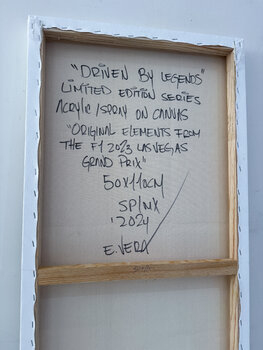 "DRIVEN BY LEGENDS"
LIMITED EDITION SERIES
ACRYLIC/SPRAY ON CANVAS
"ORIGINAL ELEMENTS FROM
THE F1 2023 LAS VEGAS
GRAND PRIX"
50x110CM
'2024
E. VERA